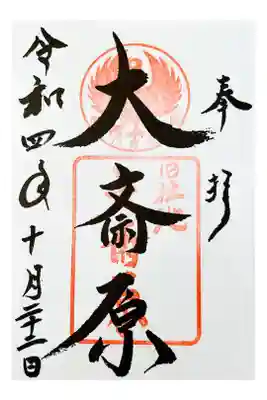 奉拝
大斎原
旧社地
令和四年十月二十二日